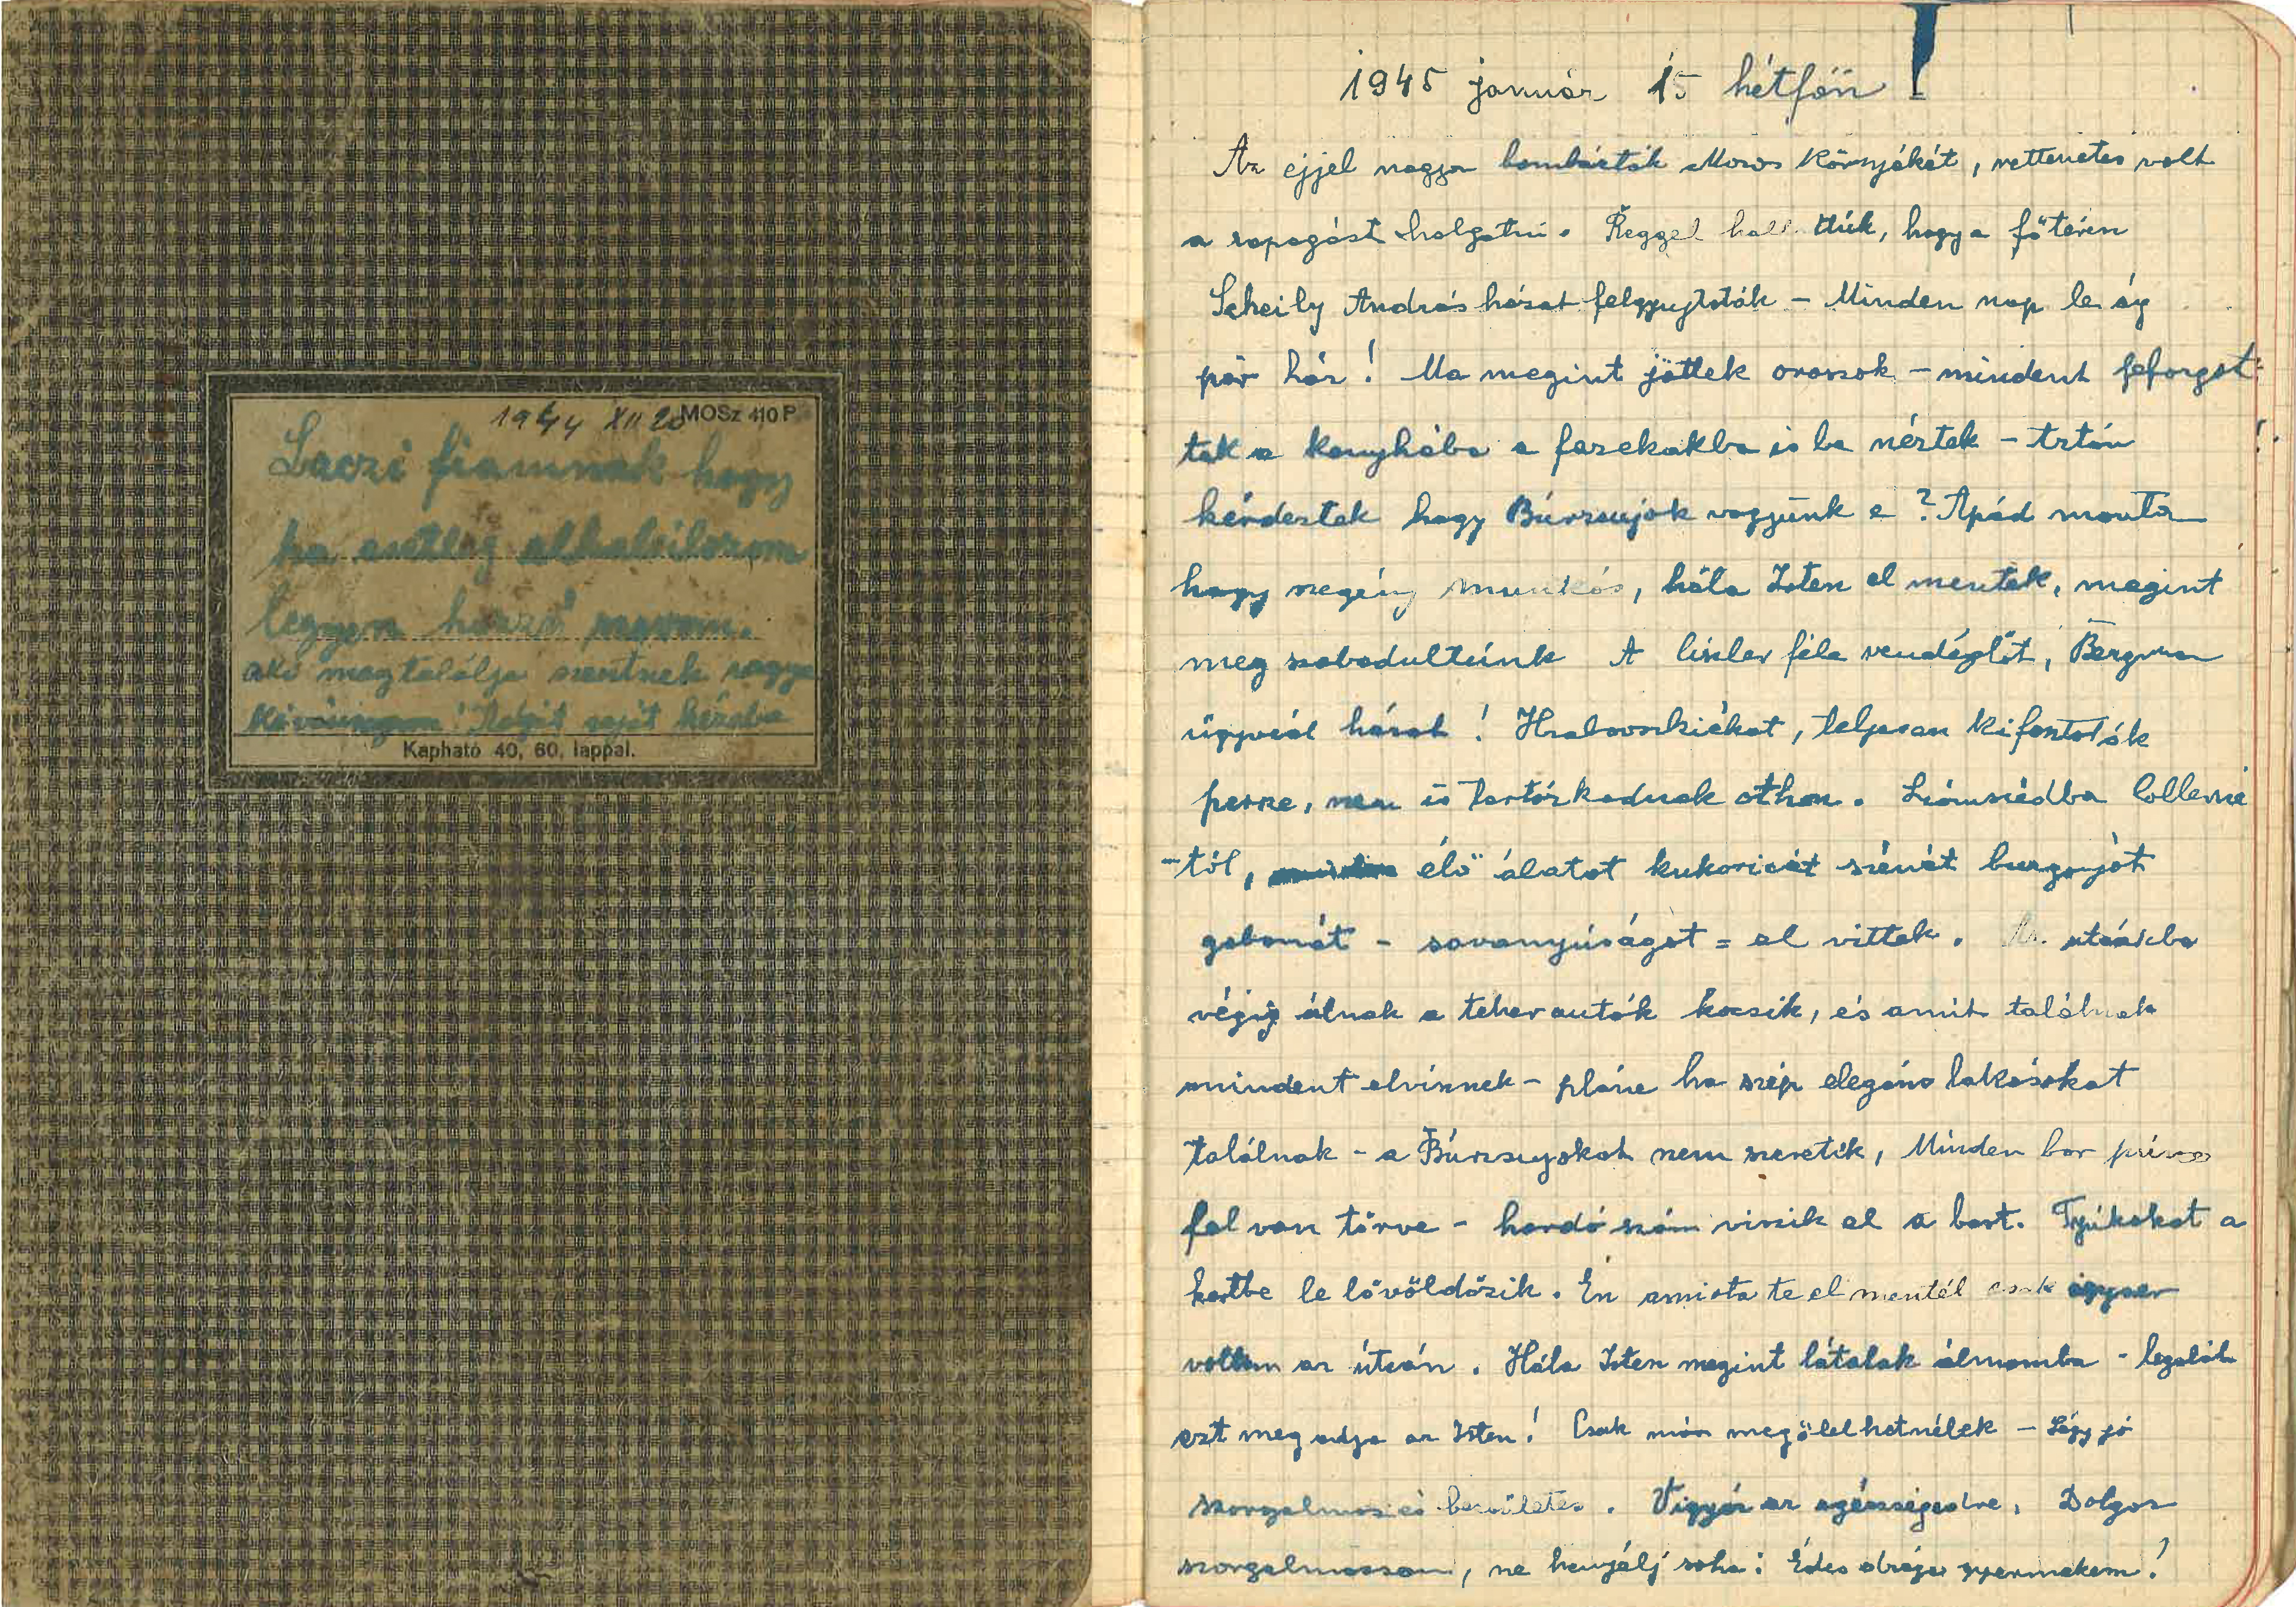 1944 XII 20 MOSz 410 P.
Laczi fiamnak hogy
ha esetleg elhalálozom
legyen hozzá szavam.
aki megtalálja szentnek vagye
Kérem! Adját saját kézebe
Kapható 40, 60, lappal.
1945 január 15 hétfőn
Az éjjel nagyon bombázták Moson környékét, rettenetes volt
a ropogást halgatni. Reggel hallottúk, hogy a főtéren
Scheily András házat felgyujtották - Minden nap le ég
pár ház! Ma megint jöttek oroszok - mindent feforgat-
tak a konyhába a fazekakba is be néztek - Aztán
kérdeztek hogy Búrzsujok vagyunk e? Apád monta
hogy szegény munkás, hála Isten el mentek, megint
meg szabadultunk A féle vendéglőt, Bergman
ügyvéd házat! Hrabovszkiékat, teljesen kifosztották
persze, nem is tartózkodnak othon. Szomszédba
-tól, élő álatot kukoricát szénát burgonyát
gabonát - savanyúságot = el vittek. Az utcákba
végig álnak a teherautók kocsik, és amit találnak
mindent elvisznek - pláne ha szép elegáns lakásokat
találnak - a Búrzsujokat nem szeretik, Minden bor pince
fel van törve - hordó szám viszik el a bort. Tyúkokat a
kertbe le lövöldözik. Én amiota te el mentél csak egyszer
voltam az útcán. Hála Isten megint látalak álmomba - legaláb
ezt meg adja az Isten! Csak már megölelhetnélek - Légy jó
szorgalmas és becsületes. Vigyáz az egészségedre, Dolgoz
szorgalmassan, ne henyélj soha! Édes drága gyermekem!